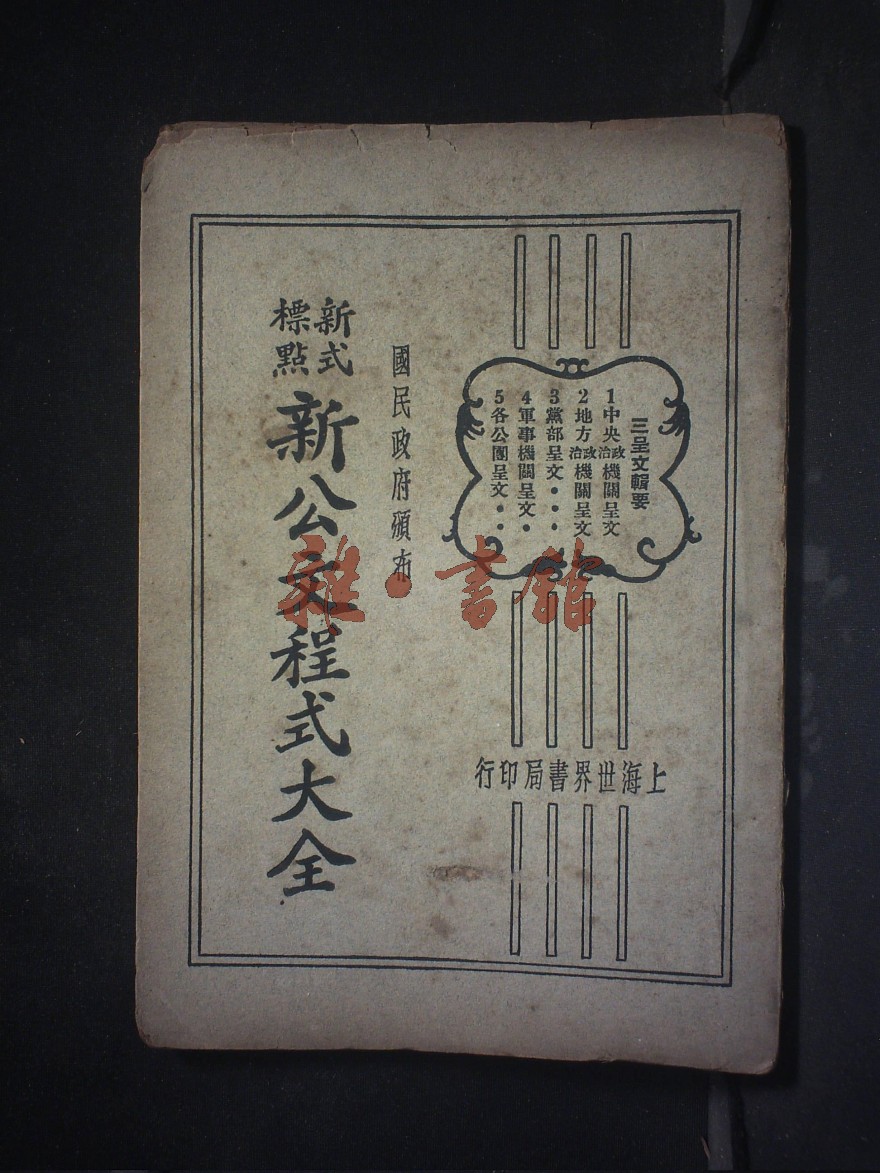 三呈文輯要
1中央政治機關呈文
2地方政治機關呈文
3黨部呈文•••
4軍事機關呈文•
5各公團呈文••
上海世界書局印行
國民政府頒布
新式標點
新公文程式大全
雜•書館